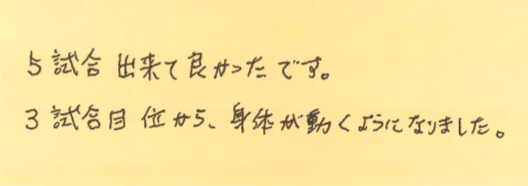 5試合出来て良かったです。
3試合目位から、身体が動くようになりました。